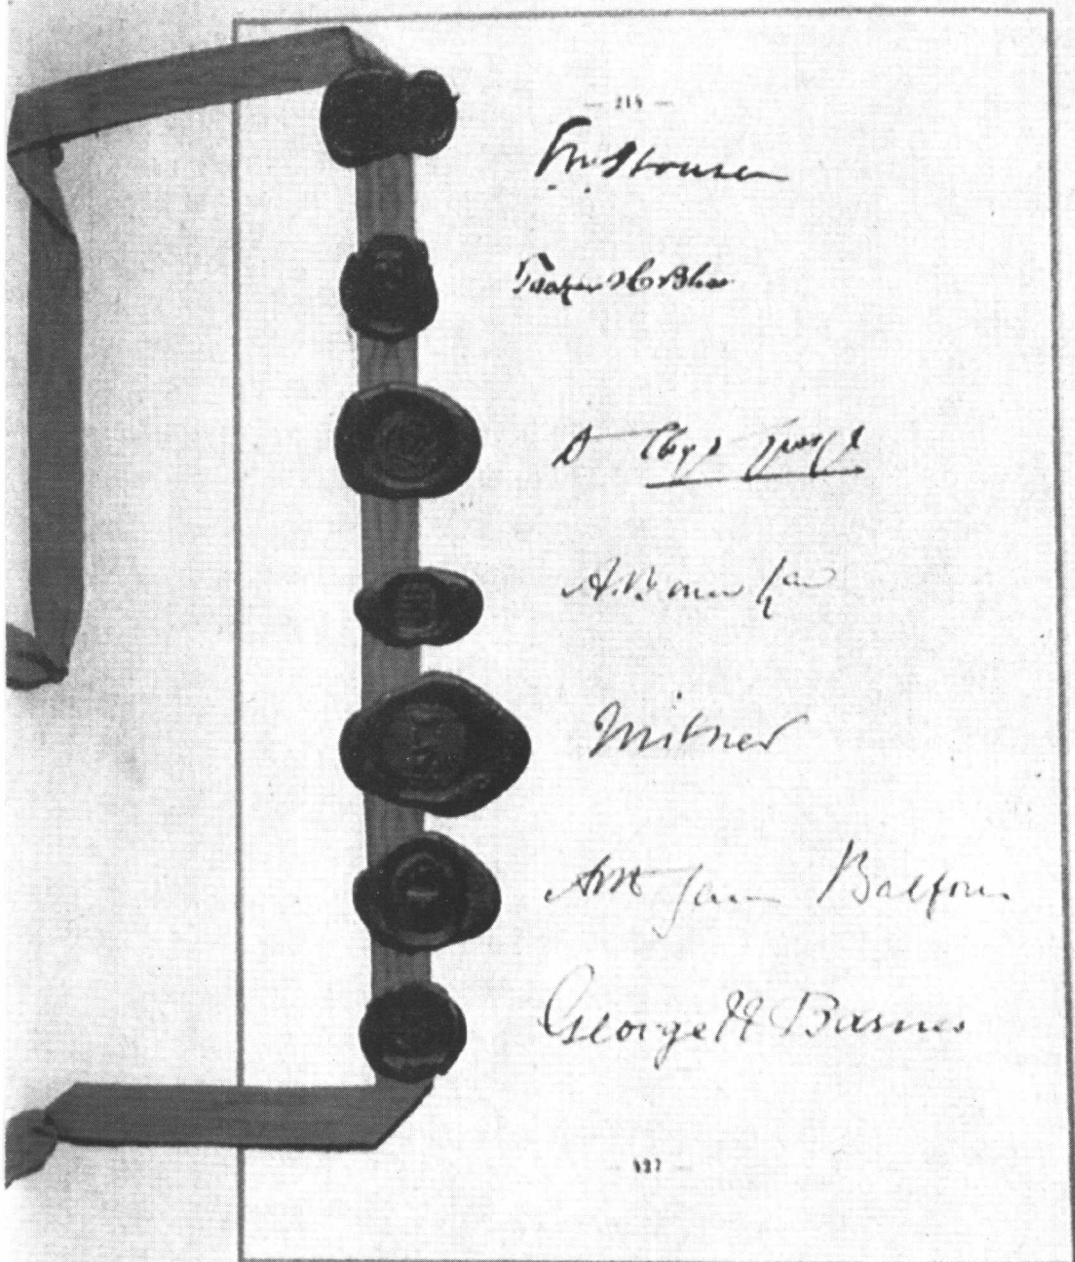 — 214 —
EM House
Tasker H Bliss
D Lloyd George
A. Bonar Law
Milner
Arthur James Balfour
George N Barnes
— 427 —